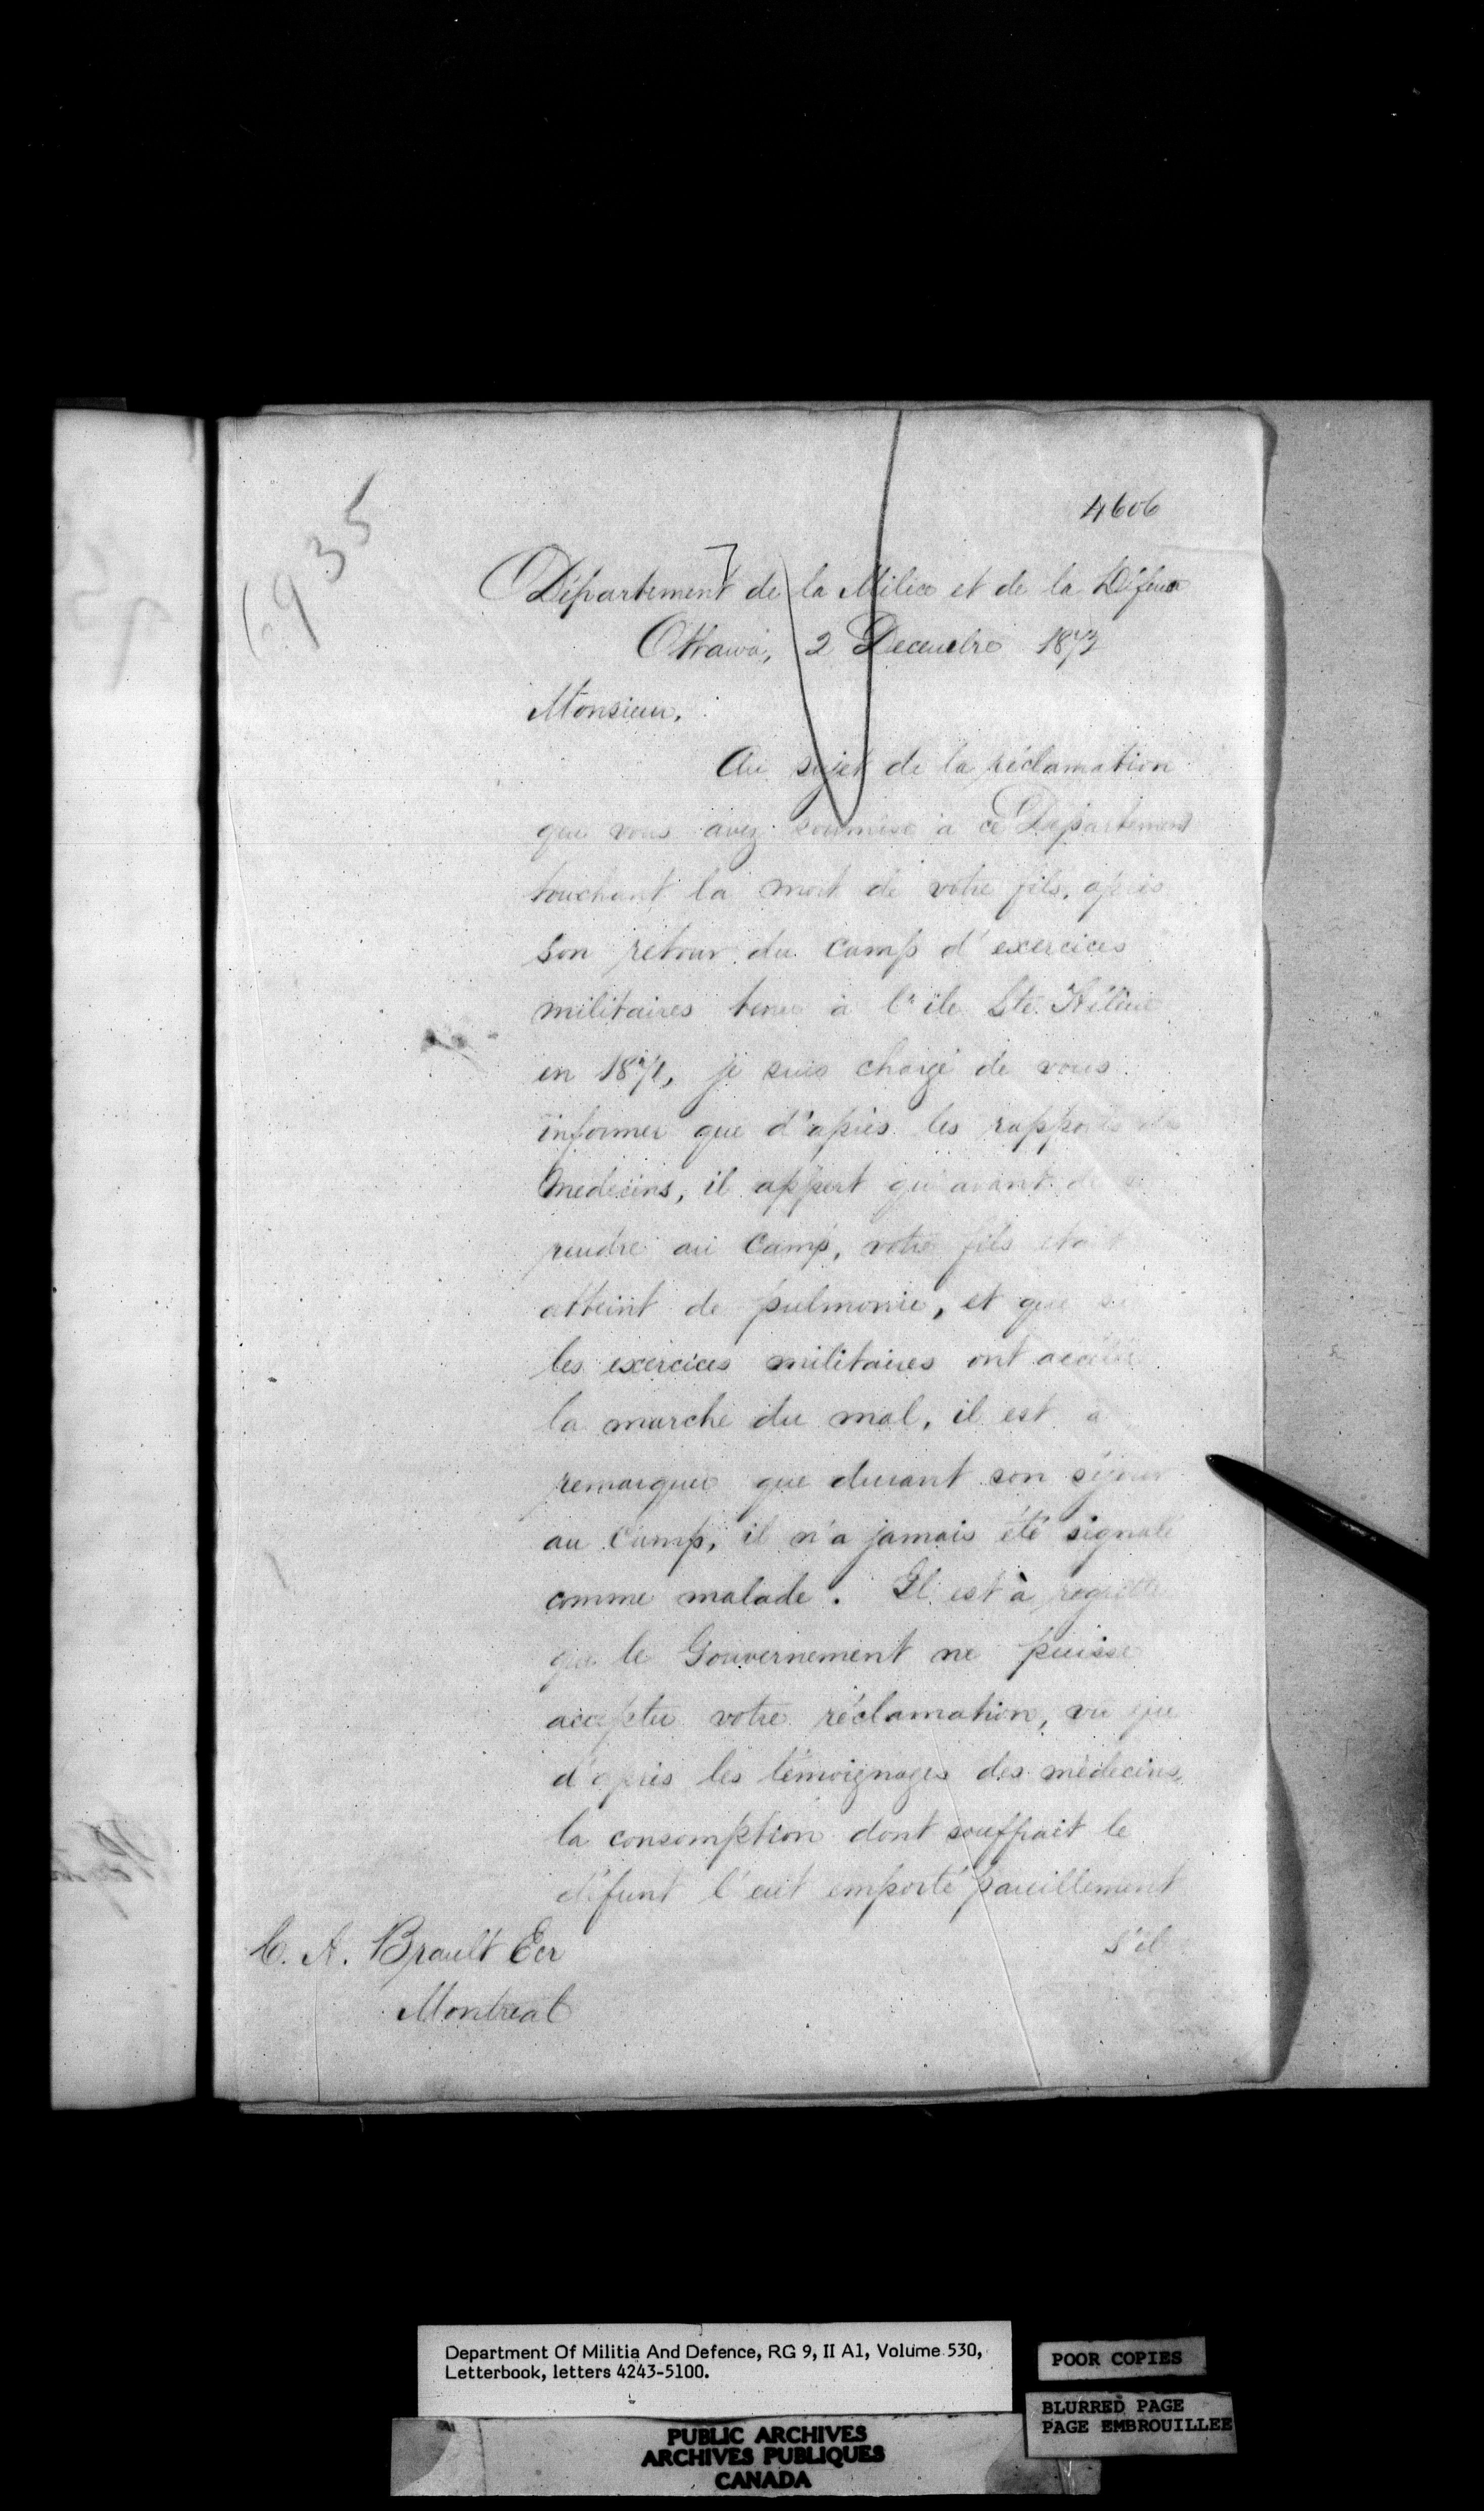 4606
6935
Département de la Milice et de la Défense
Ottawa, 2 Decembre 1873
Monsieur,
Au sujet de la réclamation
que vous avez soumise à ce Département
touchant la mort de votre fils, après
son retour du Camp d'exercices
militaires tenu à l'ile Ste. Hélène
en 1871, je suis chargé de vous
informer que d'après les rapports des
médecins, il appert qu'avant de
rendre au Camp, votre fils était
atteint de pulmonie, et que si
les exercices militaires ont accéléré
la marche du mal, il est à
remarquer que durant son séjour
au Camp, il n'a jamais été signalé
comme malade. Il est à regretter
que le Gouvernement ne puisse
accepter votre réclamation, vu que
d'après les témoignages des médecins,
la consomption dont souffrait le
défunt l'eut emporté pareillement
s'il
C. A. Brault Ecr
Montreal
Department Of Militia And Defence, RG 9, II A1, Volume 530,
Letterbook, letters 4243-5100.
POOR COPIES
BLURRED PAGE
PAGE EMBROUILLEE
PUBLIC ARCHIVES
ARCHIVES PUBLIQUES
CANADA